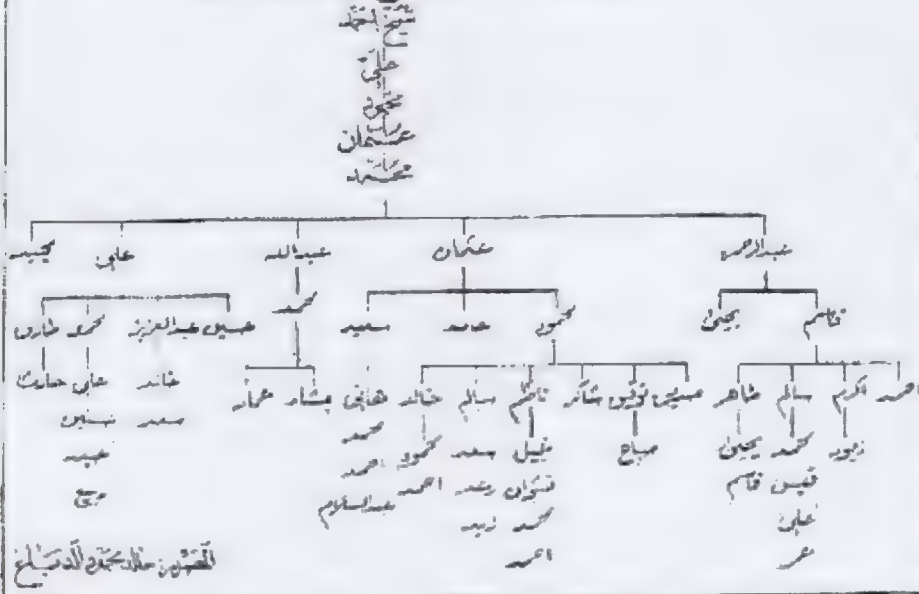 علي
محمود
عثمان
محمد
عبدالرحمن عثمان عبدالله علي مجيد
قاسم يحيى محمود حامد سعيد محمد حسين عبدالعزيز محمود طارق
احمد اكرم سالم ظاهر توفيق شاكر ناظم سالم خالد هاني بشار عمار خالد علي حارث
محمد يحيى صباح نبيل سعد محمود محمد سعد
قيس قاسم رعد احمد احمد
علي محمد زيد عبدالسلام ربيع
عمر احمد
المصدر: خالد محمود الدباغ